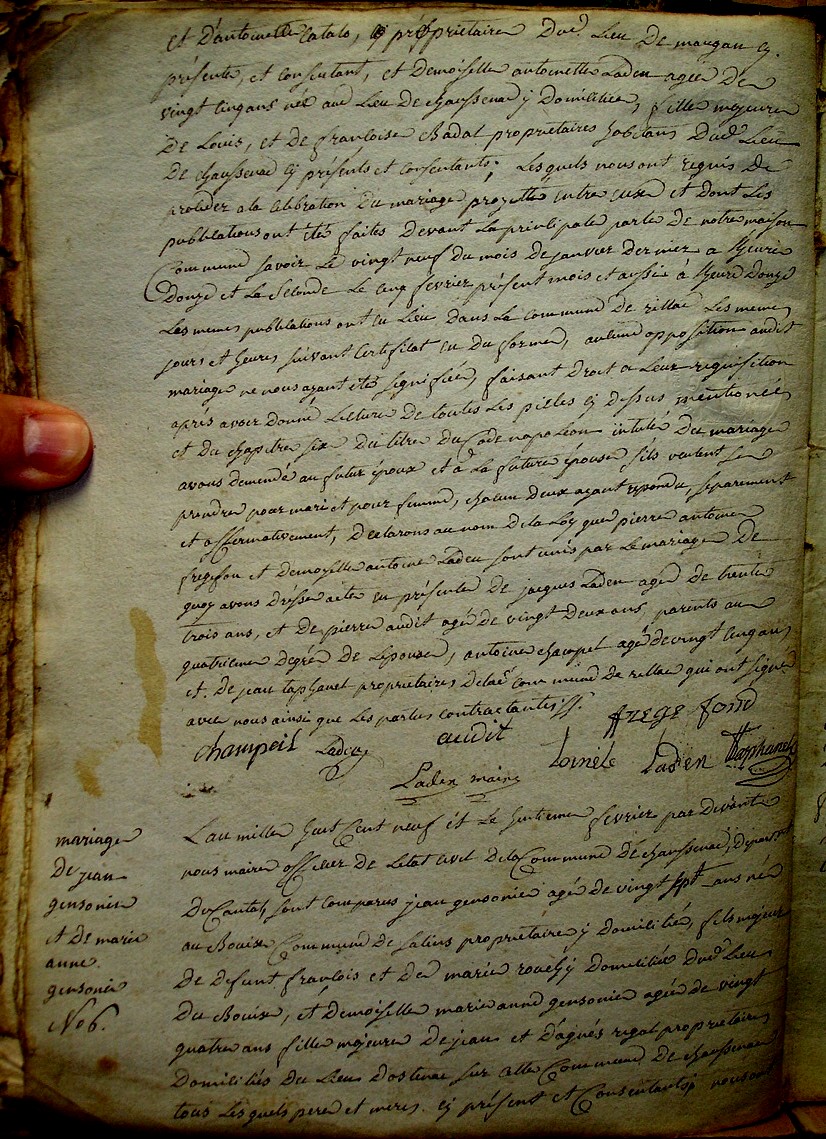 et D'antoinette Catalo, propriétaires Dud. Lieu De maugan cy
présents, et consentant, et Demoiselle antoinette Laden agée De
vingt cinq ans née aud Lieu De chaussenac y Domiciliée, fille majeure
De Louis, et De françoise Badal propriétaires habitans Dud. Lieu
De chaussenac cy présents et consentants; Lesquels nous ont requis De
proceder a la celebration Du mariage projetté entre eux et Dont Les
publications ont été faites Devant La principale porte De notre maison
Commune savoir Le vingt neuf Du mois De janvier Dernier a heure
Douze et La seconde Le cinq fevrier présent mois et aussi à heure Douze
Les memes publications ont eu Lieu Dans La commune De rillac Les memes
jours et heures suivant certificat en Du forme, aucune opposition audit
mariage ne nous ayant été signifiée, faisant Droit a Leur requisition
après avoir Donné Lecture De toutes Les pièces cy Dessus mentionées
et Du chapitre six Du titre Du Code napoleon intitulé Du mariage
avons Demendé au futur époux et à La future épouse s'ils veulent se
prendre pour mari et pour femme, chacun Deux ayant repondu, séparement
et affirmativement, Declarons au nom De la Loy que pierre antoine
fregefon et Demoiselle antoine Laden sont unis par Le mariage De
quoy avons Dressé acte en présence De jacques Laden agé De trente
trois ans, et De pierre audit agé De vingt Deux ans, parents au
quatrieme Degré De Lepouse, antoine champel agé De vingt cinq ans
et De jean taphanel propriétaires De lad. commune De rillac qui ont signé
avec nous ainsi que Les parties contractantes.
champeil Laden audit fregefond
Laden maire Laden Taphanel
mariage
De jean
gensonie
et De marie
anne
gensonie
No 6.
L'an mille huit Cent neuf et Le huitieme fevrier par Devant
nous maire officier De Letat civil De la Commune De chaussenac, Departement
Du Cantal, sont comparus jean gensonie agé De vingt sept ans né
au Bouise Commune De Salins propriétaire y Domicilié, fils majeur
De Defunt françois et De marie rouchy Domiciliée Dud. Lieu
Du Bouise, et Demoiselle marie anne gensonie agée De vingt
quatre ans fille majeure De jean et D'agnés rigal propriétaires
Domiciliés Du Lieu Dostenac sur cette Commune De chaussenac
tous Lesquels pere et meres cy présent et Consentants, nous ont